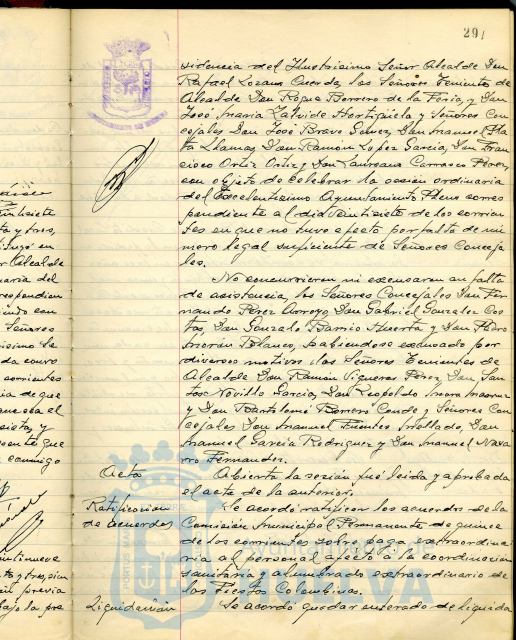 291
sidencia del Ilustrisimo Señor Alcalde Don
Rafael Lozano Cuerda, los Señores Tenientes de
Alcalde Don Roque Borrero de la Feria, y Don
José María Zalvide Hortigüela y Señores Con-
cejales Don José Bravo Gómez, Don Manuel Pla-
ta Llamas, Don Ramón Lopez Garcia, Don Fran-
cisco Ortiz Ortiz y Don Laureano Carrasco Perez,
con objeto de celebrar la sesión ordinaria
del Excelentisimo Ayuntamiento Pleno corres-
pondiente al dia veintisiete de los corrien-
tes en que no tuvo efecto por falta de nú-
mero legal suficiente de Señores Conceja-
les.
No concurrieron ni excusaron su falta
de asistencia, los Señores Concejales Don Fer-
nando Pérez Arroyo, Don Gabriel Gonzalez Cos-
tas, Don Gonzalo Barrio Huerta y Don Pedro
Morón Blanco, habiendose excusado por
diversos motivos los Señores Tenientes de
Alcalde Don Ramón Vigueras Pérez, Don San-
tos Novillo Garcia, Don Leopoldo Mora
y Don Bartolomé Borrero Conde y Señores Con-
cejales Don Manuel Fuentes Mollado, Don
Manuel Garcia Rodriguez y Don Manuel Nava-
rro Fernandez.
Acta Abierta la sesión fué leida y aprobada
el acta de la anterior.
Ratificación Se acordó ratificar los acuerdos de la
de acuerdos Comisión Municipal Permanente de quince
de los corrientes sobre paga extraordina-
ria al personal afecto a la coordinación
sanitaria y alumbrado extraordinario de
las Fiestas Colombinas.
Liquidación Se acordó quedar enterado de liquida